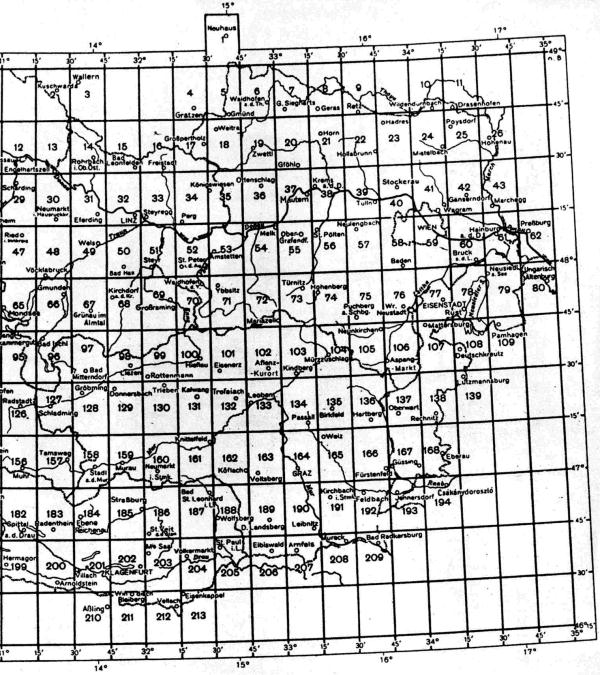 15°
Neuhaus
1
14° 16° 17°
15' 30' 45' 15' 30' 45' 15' 30' 45' 15' 35°
49°
n. B
Wallern
Kuschwarda
2 3 4 5 6 7 8 9 10 11
Thaya
Waidhofen
a.d.Th.
G. Siegharts
Geras
Retz
Wildendürnbach
Drasenhofen
45'
Gratzen
Gmünd
Großpertholz
Weitra
Horn
Hadres
Poysdorf
12 13 14 15 16 17 18 19 20 21 22 23 24 25 26
Engelhartszell
Rohrbach
i.Ob.Öst.
Bad
Leonfelden
Freistadt
Zwettl
Göhlo
Hollabrunn
Mistelbach
Hohenau
30'
Schärding
Königswiesen
Ottenschlag
Krems
a.d.D.
Stockerau
29 30 31 32 33 34 35 36 37 38 39 40 41 42 43
Neumarkt
i. Hausruckkr.
Eferding
LINZ
Steyregg
Perg
Mautern
Tulln
Gänserndorf
Marchegg
March
Wagram
15'
Ried
Wels
Traun
Donau
Melk
Ober-
Grafendf.
St. Pölten
Neulengbach
WIEN
Hainburg
a. d. D.
Preßburg
47 48 49 50 51 52 53 54 55 56 57 58 59 60 61 62
Vöcklabruck
Bad Hall
Steyr
St. Peter
i.d. Au
Amstetten
Baden
Bruck
a.d.L.
Neusiedl
a. See
Ungarisch
Altenburg
48°
Gmunden
Kirchdorf
a.d.Kr.
Waidhofen
Ybbsitz
Türnitz
Hohenberg
65 66 67 68 69 70 71 72 73 74 75 76 77 78 79 80
Mondsee
Grünau im
Almtal
Großraming
Mariazell
Puchberg
a. Schbg.
Wr.
Neustadt
EISENSTADT
Rust
Neunkirchen
Mattersburg
Pamhagen
45'
Bad Ischl
95 96 97 98 99 100 101 102 103 104 105 106 107 108 109
Bad
Mitterndorf
Liezen
Rottenmann
Hieflau
Eisenerz
Aflenz-
Kurort
Kindberg
Mürzzuschlag
Aspang-
Markt
Deutschkreutz
30'
Radstadt
Gröbming
Donnersbach
Trieben
Kalwang
Trofaiach
Leoben
Lutzmannsburg
126 127 128 129 130 131 132 133 134 135 136 137 138 139
Schladming
Passail
Birkfeld
Hartberg
Oberwart
Rechnitz
15'
Knittelfeld
Weiz
Tamsweg
156 157 158 159 160 161 162 163 164 165 166 167 168
Muhr
Stadl
a.d.Mur
Murau
Neumarkt
i. Stmk.
Köflach
Voitsberg
GRAZ
Fürstenfeld
Güssing
Eberau
47°
Straßburg
Bad
St. Leonhard
i.L.
Kirchbach
i. Stmk.
Feldbach
Jennersdorf
Raab
Csákánydoroszló
182 183 184 185 186 187 188 189 190 191 192 193 194
Spittal
a.d. Drau
Radenthein
Ebene
Reichenau
St. Veit
Wolfsberg
D. Landsberg
Leibnitz
45'
Hermagor
Völkermarkt
St. Paul
i.L.
Eibiswald
Arnfels
Mureck
Bad Radkersburg
199 200 201 202 203 204 205 206 207 208 209
Villach
Arnoldstein
KLAGENFURT
Drau
30'
Aßling
Bleiberg
Vellach
Eisenkappel
210 211 212 213
46°15'
14° 15° 16° 17°
15' 30' 45' 32° 15' 30' 45' 33° 15' 30' 45' 34° 15' 30' 45'